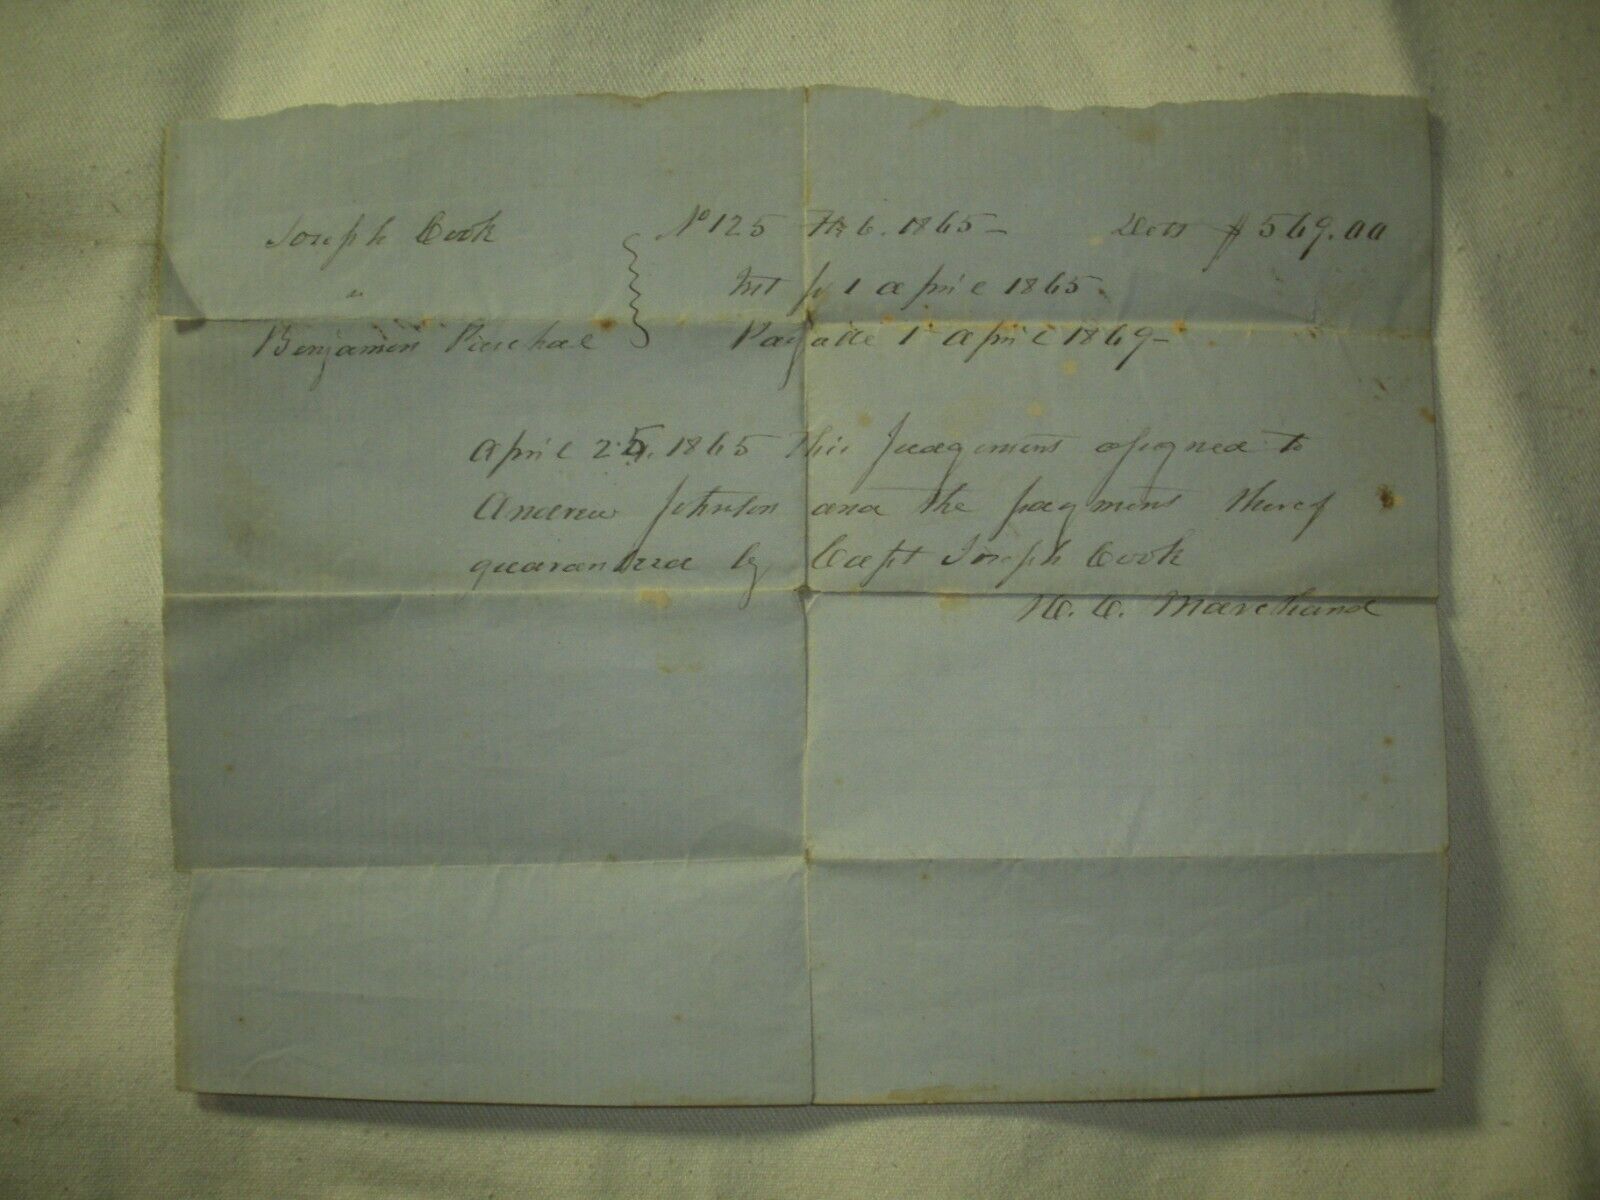 Joseph Cook No 125 Feb. 1865 – Debt $569.00
" Int fr 1 April 1865
Benjamin Paschal Payable 1 April 1869 –
April 25, 1865 this Judgement assigned to
Andrew Johnston and the payment thereof
guaranteed by Capt Joseph Cook
H. C. Marchand